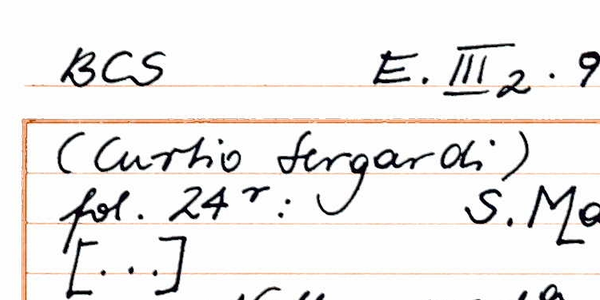 BCS E. III 2 . 9
(Curtio Sergardi)
fol. 24r: S. Ma
[...]